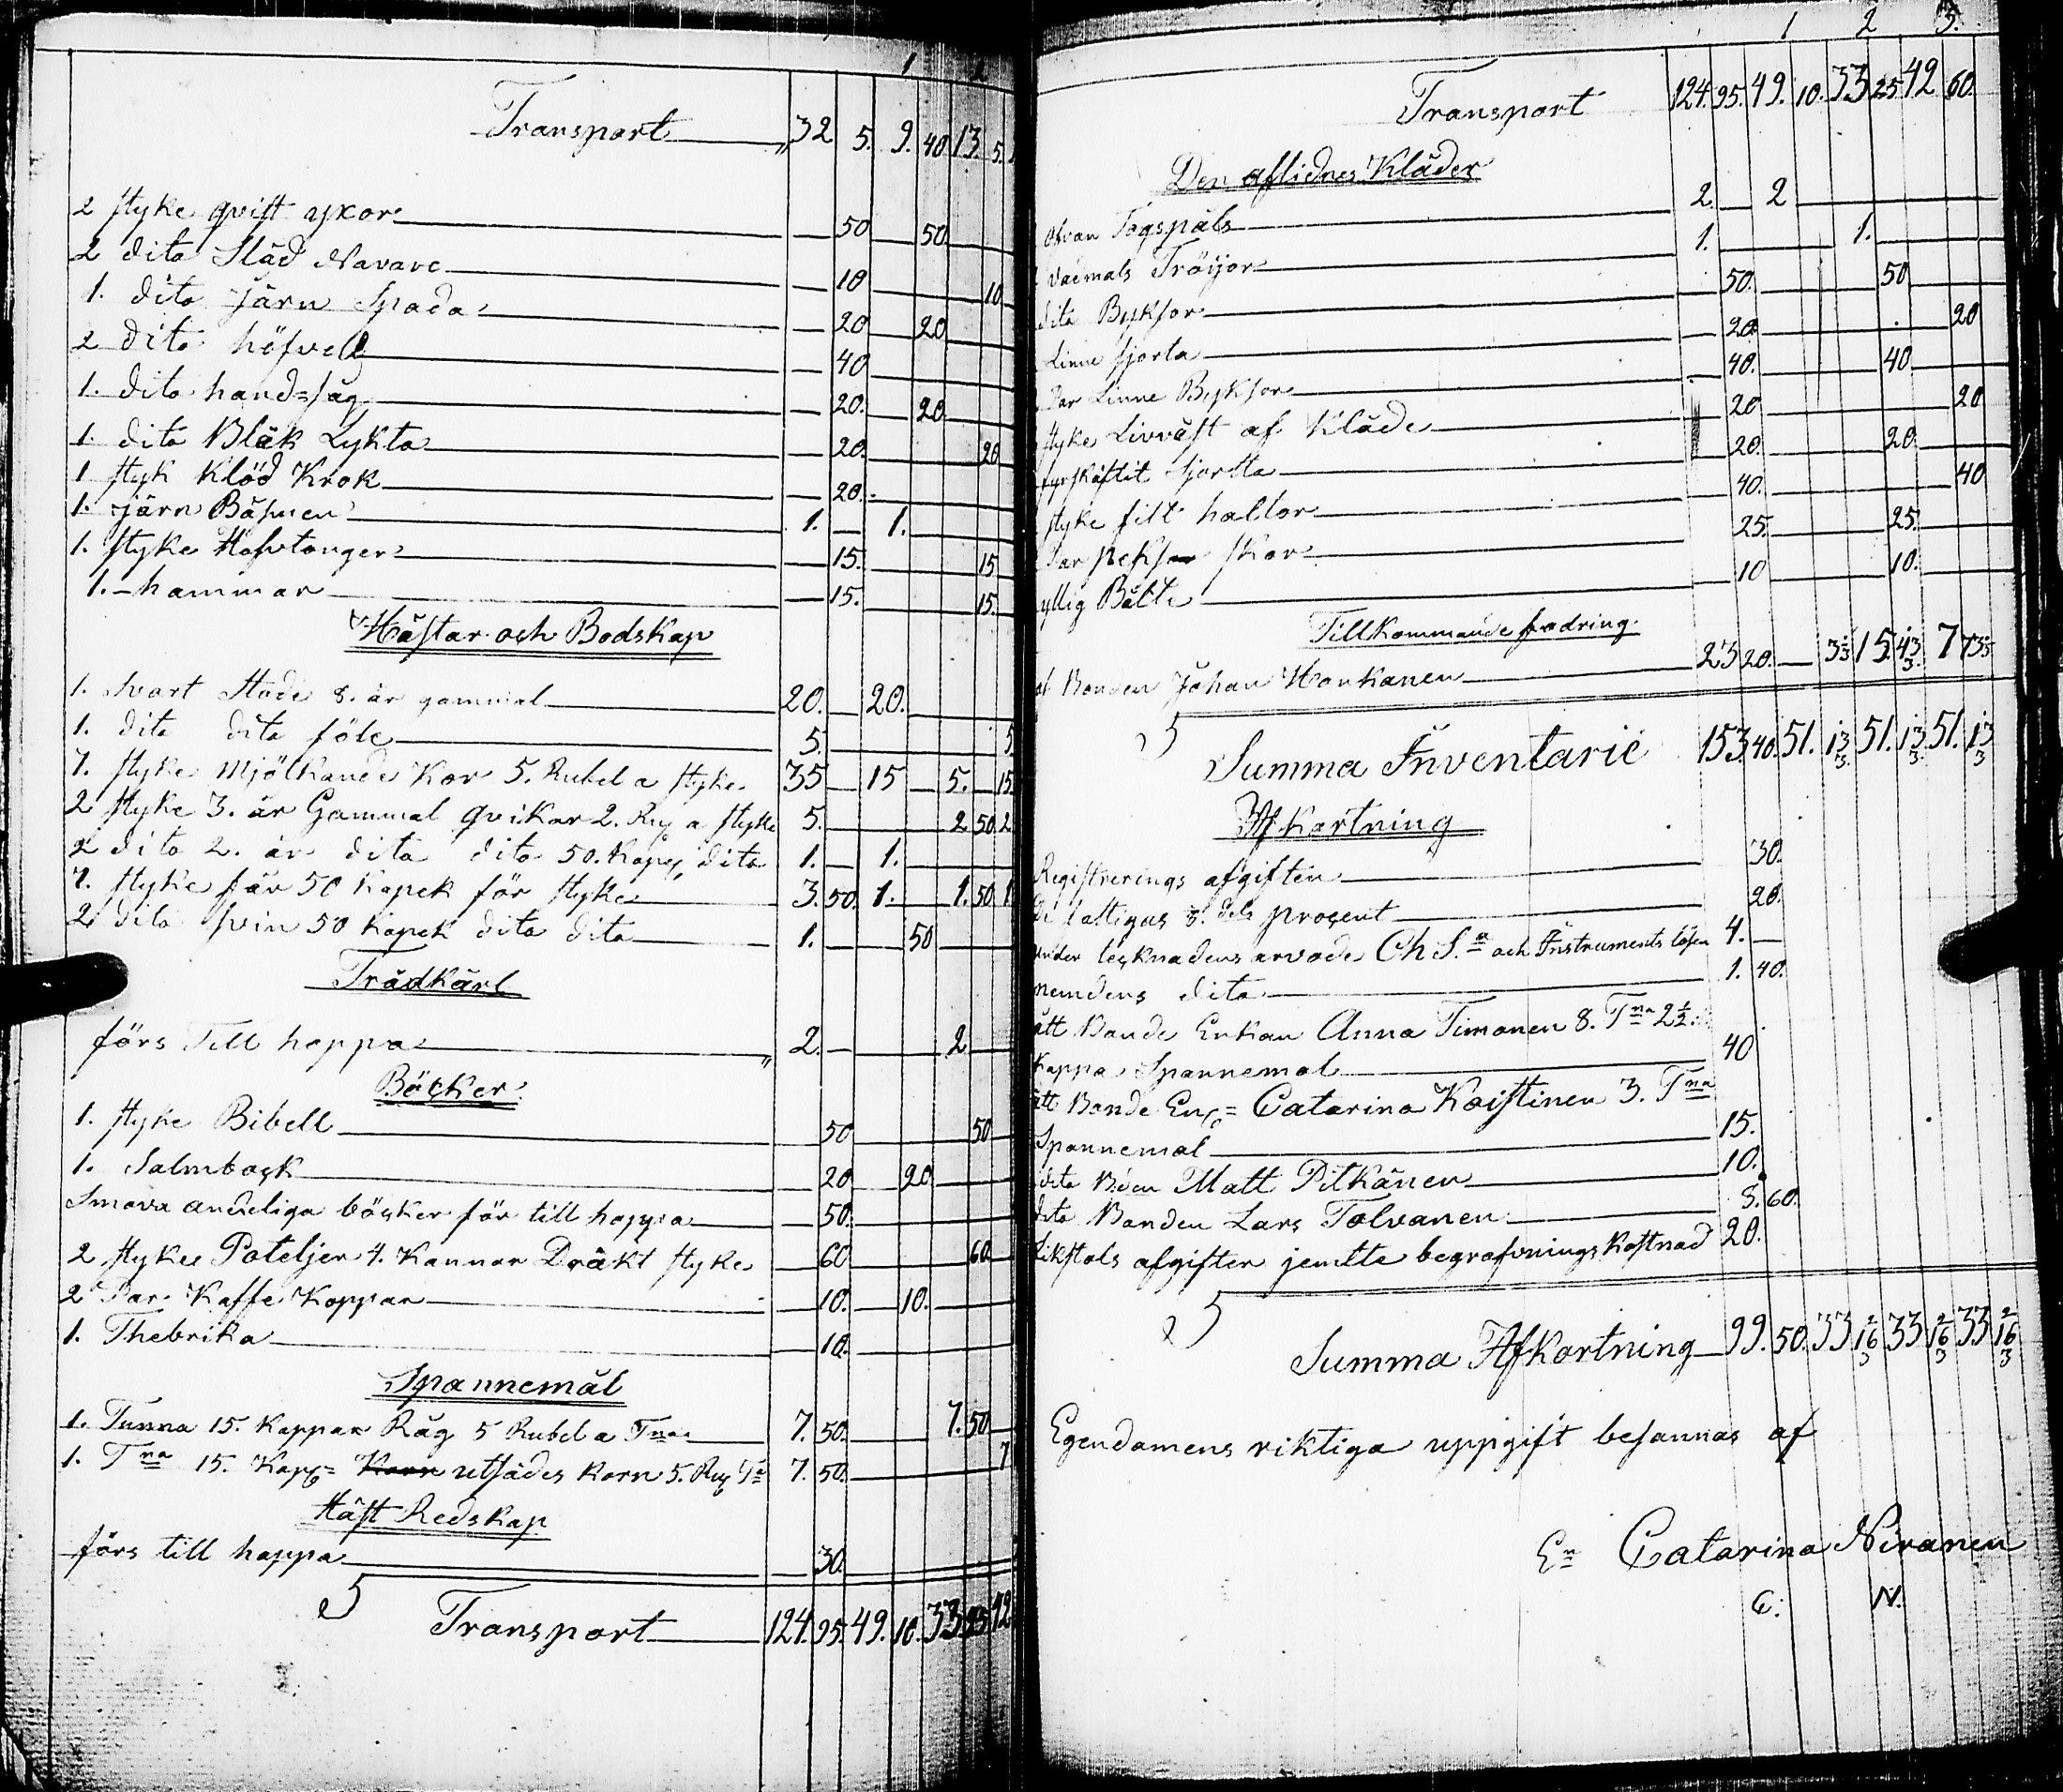 1 2
Transport 32 5. 9. 40 13. 5.
2 styke qvist yxor 50 50
2 dito Släd Navare 10 10
1. dito järn Spada 20 20
2 dito höfvell 40
1. dito hand=såg 20. 20
1. dito Bläk Lykta 20. 20
1 styk Klöd Krok 20.
1. järn Båsmen 1. 1.
1. styke Hofvtonger 15. 15
1. - hammar 15. 15.
Hästar och Bodskap
1. Svart Stode 8. år gammal 20. 20.
1. dito dito föle 5. 5
7. styke Mjölkande Kor 5. Rubel a styke 35 15 5. 15.
2 styke 3. år Gammal qvikor 2. a styke 5. 2 50 2
2 dito 2. år dito dito 50. Kopek dito 1. 1.
7. styke får 50 Kopek för styke 3. 50. 1. 1. 50 1
2 dito svin 50 Kopek dito dito 1. 50
Trädkärl
förs Till hoppa 2. 2
Böcker
1. styke Bibell 50 50
1. Salmbock 20 20
Smova andeliga böcker för till hoppa 50.
2 styke Poteljer 4. Kannor Dräkt styke 60 60
2 Par Kaffe Koppar 10. 10.
1. Thebrika 10.
Spannemål
1. Tunna 15. Kappar Råg 5 Rubel a Tna 7. 50. 7. 50
1. Tna 15. Kapp= Korn utsädes Korn 5. Tn 7. 50. 7
Häst Redskap
förs till hoppa 30.
S Transport 124. 95. 49. 10. 33. 25 42
1 2 3.
Transport 124. 95. 49. 10. 33 25 42 60.
Den aflidnes Kläder
ofvan Togspäls 2. 2
Vadmals Tröijor 1. 1.
dito Byksor 50. 50
Linne sjorta 20 20
Par Linne Byksor 40. 40
styke Livväst af Kläde 20 20
fyrskäftit sjortta 20. 20.
styke filt hattor 40. 40
Par skor 25. 25.
yllig Bälte 10 10.
Tillkommande fodring
af Bonden Johan Honkanen 23 20. 3⅓ 15. 43⅓ 7 73⅓
S Summa Inventarie 153 40. 51. 13⅓ 51. 13⅓ 51. 13⅓
Afkortning
Registrerings afgiften 30.
De fattigas 8. dels procent 20.
under tecknadens arvode Ch S.a och Instruments lösen 4.
nemdens dito 1. 40.
ått Bonde Enkan Anna Timonen 8. Tna 2½
Kappa Spannemol 40
ått Bonde Enk= Catarina Koistinen 3. Tna
Spannemol 15.
dito Bden Matt Pitkänen 10.
dito Bonden Lars Tolvanen 8. 60.
Likstols afgifter jemtte begrafvnings Kostnad 20.
S Summa Afkortning 99. 50. 33 16⅔ 33 16⅔ 33 16⅔
Egendomens riktiga uppgift besannas af
En Catarina Niranen
C. N.